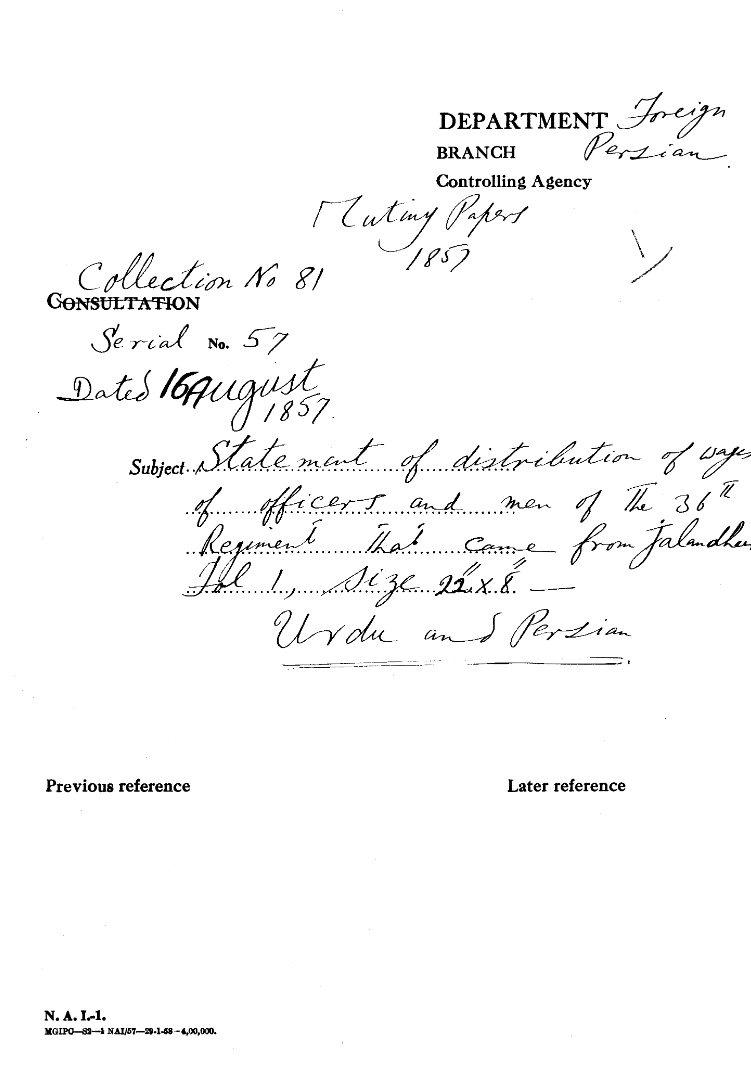 DEPARTMENT Foreign
BRANCH Persian
Controlling Agency
Mutiny Papers
1857
Collection No 81
CONSULTATION
Serial No. 57
Dated 16 August
1857.
Subject Statement of distribution of wages
of officers and men of the 36th
Regiment that came from Jalandhar
Fol 1, size 22" x 8" —
Urdu and Persian
Previous reference Later reference
N. A. I.-1.
MGIPC—S2—1 NAI/57—29-1-58—4,00,000.